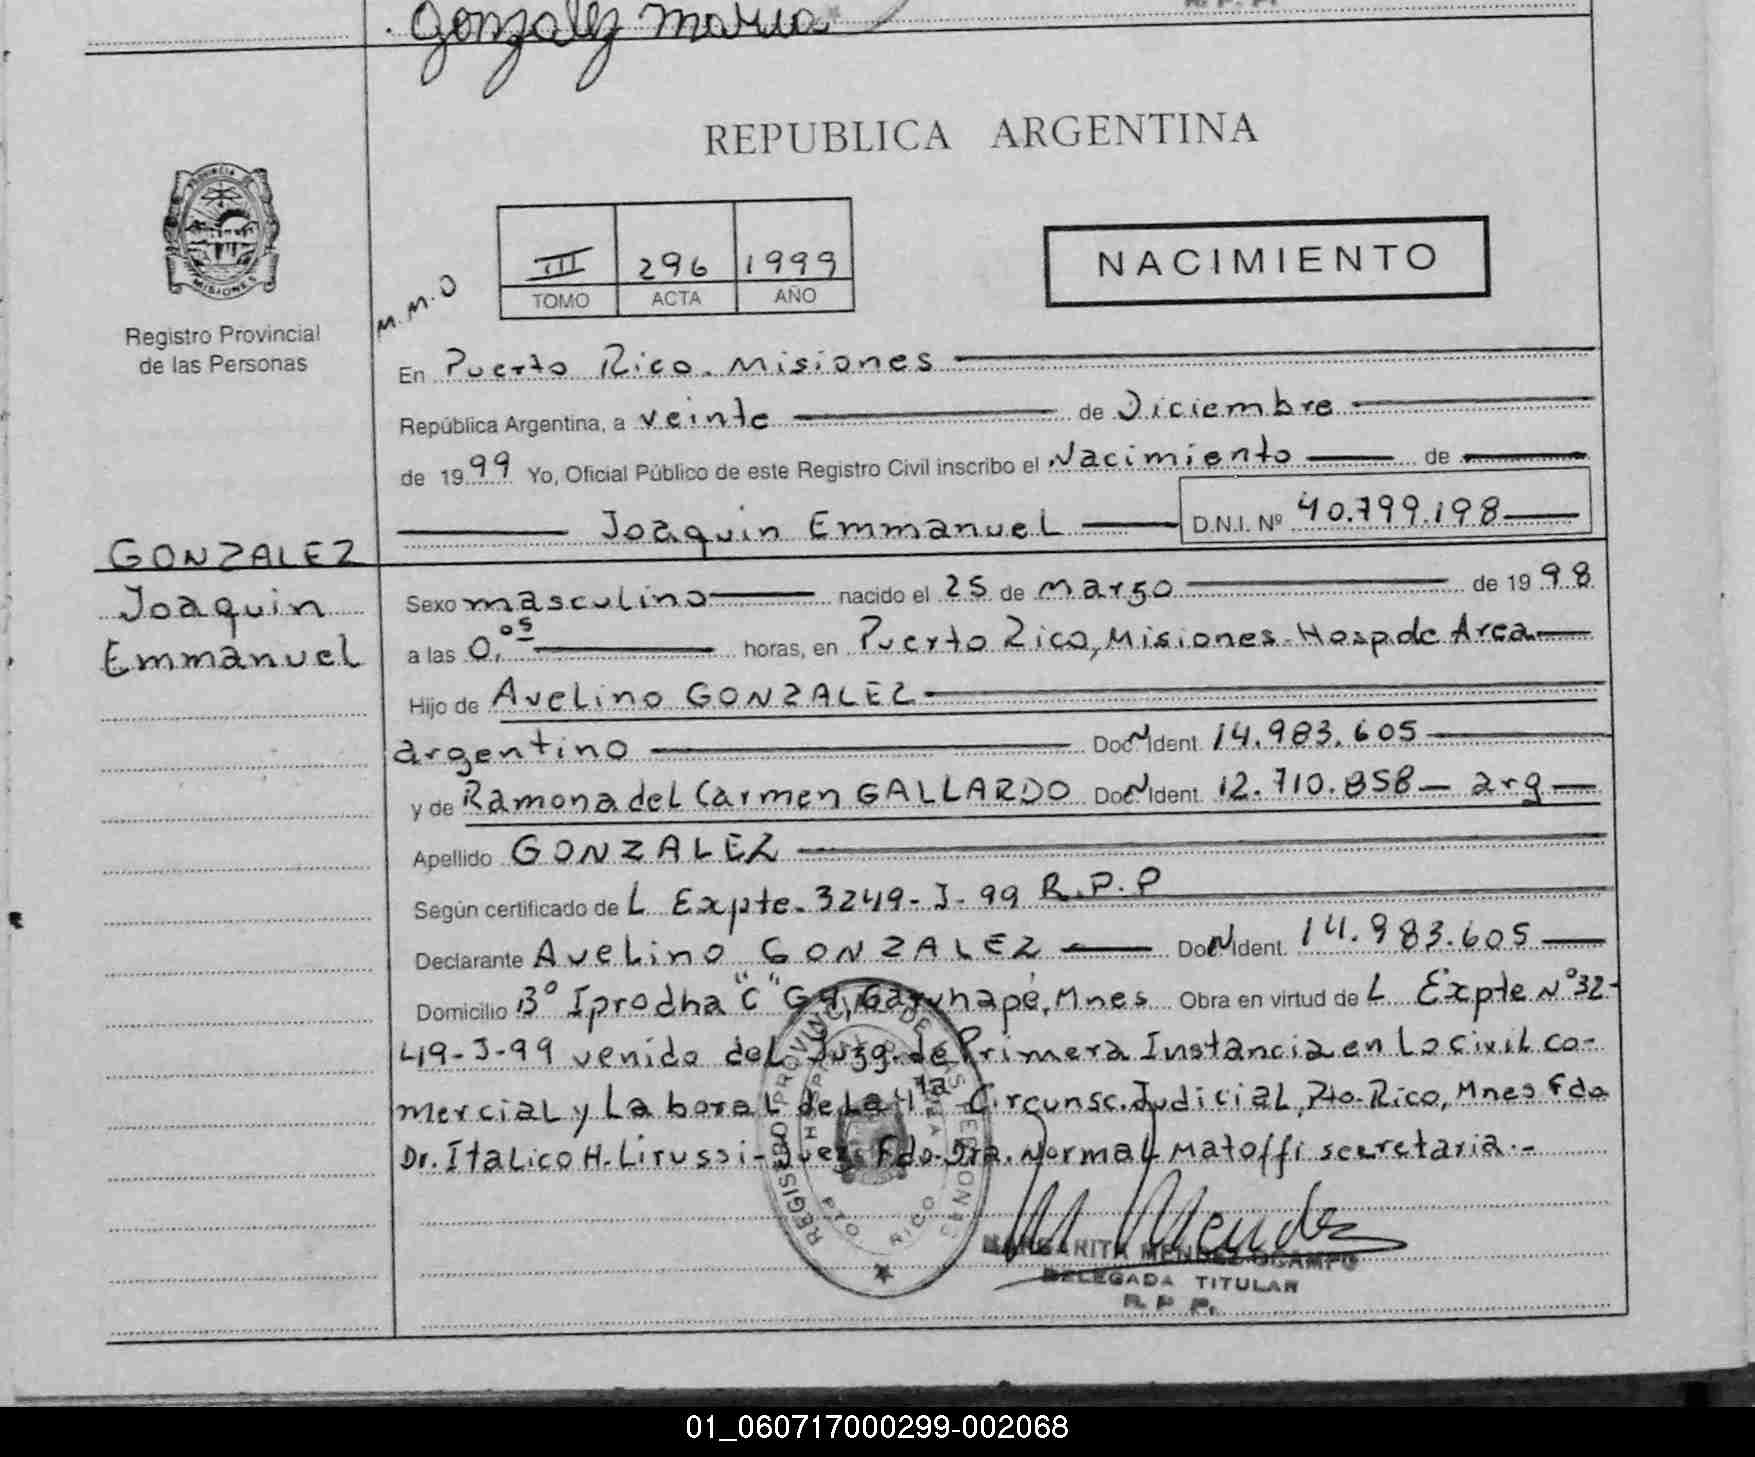 Gonzalez Maria
R. P. P.
REPUBLICA ARGENTINA
PROVINCIA DE
MISIONES
Registro Provincial
de las Personas
III 296 1999
TOMO ACTA AÑO
NACIMIENTO
M.M.O
En Puerto Rico. Misiones
República Argentina, a veinte de Diciembre
de 1999 Yo, Oficial Público de este Registro Civil inscribo el Nacimiento de
Joaquin Emmanuel D.N.I. Nº 40.799.198
GONZALEZ
Joaquin
Emmanuel
Sexo masculino nacido el 25 de Marzo de 1998
a las 0,05 horas, en Puerto Rico, Misiones-Hosp de Area
Hijo de Avelino GONZALEZ
argentino Doc N Ident. 14.983.605
y de Ramona del Carmen GALLARDO Doc N Ident. 12.710.858 - arg
Apellido GONZALEZ
Según certificado de L Expte. 3249-J-99 R.P.P
Declarante Avelino GONZALEZ Doc N Ident. 14.983.605
Domicilio Bº Iprodha "C" Garuhapé, Mnes Obra en virtud de L Expte Nº 32-
49-J-99 venido del Juzg. de Primera Instancia en Lo Civil Co-
mercial y Laboral de La 4ta Circunsc. Judicial, Pto. Rico, Mnes Fdo
Dr. Italico H. Lirussi - Juez. Fdo. Dra. Norma L Matoffi secretaria.-
REGISTRO PROVINCIAL DE LAS PERSONAS
PTO RICO
M Mendez
MARGARITA MENDEZ OCAMPO
DELEGADA TITULAR
R. P. P.
01_060717000299-002068